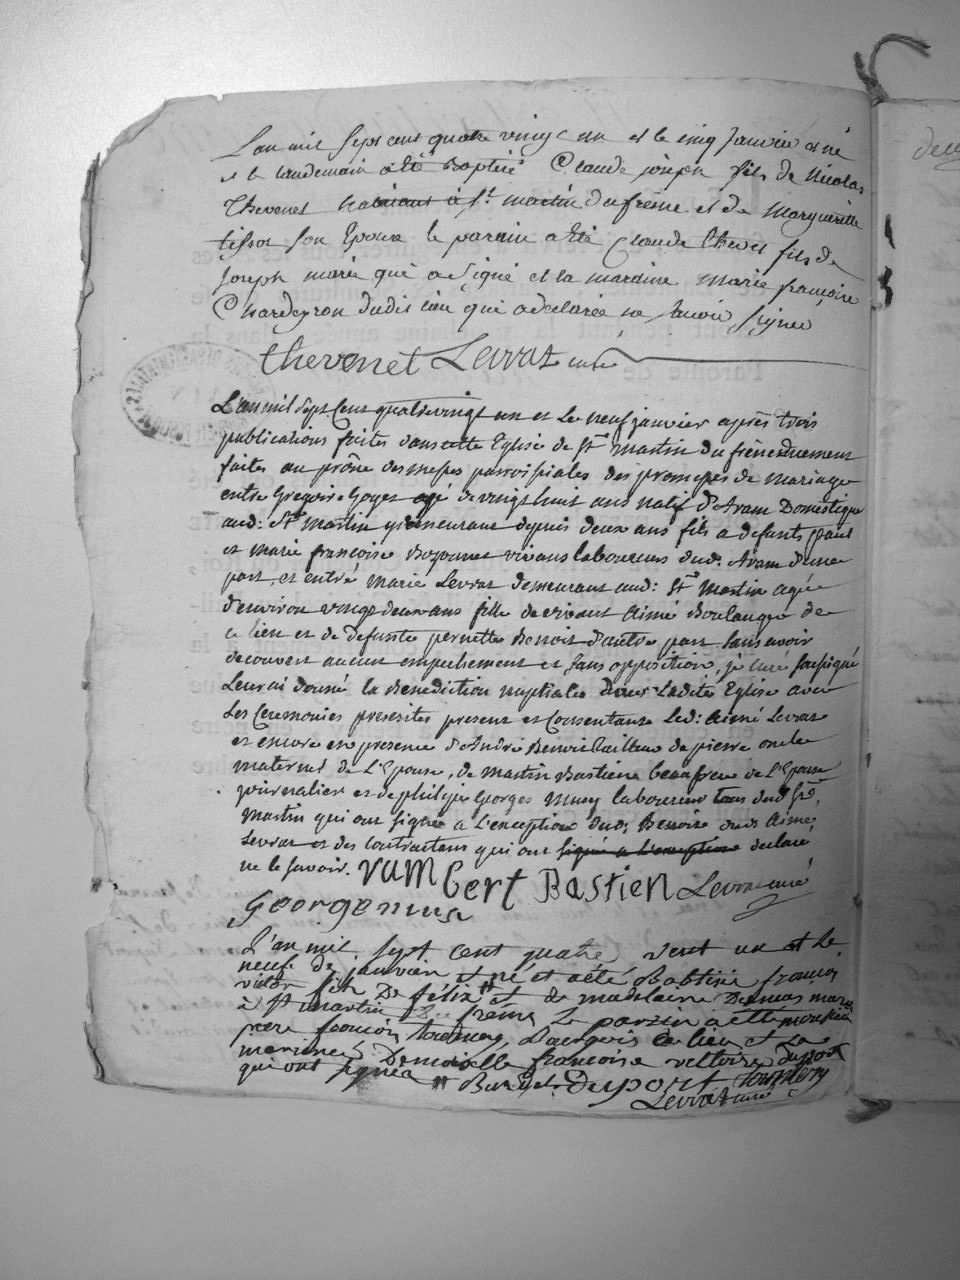 L'an mil Sept cent quatre vingt un et le cinq Janvier est né
et le landemain a été Baptisé Claude joseph fils de Nicolas
Thevenet habitant à St. martin du frêne et de Margueritte
tissot son Epouse le parain a été Claude thevet fils de
Joseph marie qui a signé et la maraine marie françoise
Chardeyron dudit lieu qui a declarée ne savoir signer
thevenet Levrat curé
L'an mil Sept Cent quatrevingt un et Le neuf janvier après trois
publications faites dans cette Eglise de St martin du frêne duement
faites au prône des messes parroissiales des promesses de mariage
entre Gregoire Goyet agé de vingt huit ans natif d'Aram Domestique
aud: St Martin y demeurant depuis deux ans fils a defunts paul
et marie françoise vivans laboureurs dud: Aram d'une
part, et entre Marie Levrat demeurant aud: St Martin agée
d'environ vingt deux ans fille de vivant Aimé Boulanger de
ce lieu et de defunte pernette Benoit d'autre part sans avoir
decouvert aucun empechement et sans opposition, je curé soussigné
Leur ai donné la Benediction nuptiale dans Ladite Eglise avec
Les Ceremonies prescrites present et Consentant Led: Aimé Levrat
et encore en presence d'André Benoit tailleur de pierre oncle
maternel de L'Epouse, de martin Bastien beaufrere de L'Epouse
journalier et de philipe Georges Musy laboureur tous dud: St
Martin qui ont signé a L'exception dud: Benoit dud: Aimé
Levrat et des Contractans qui ont signé a l'exception declaré
ne le savoir. vambert Bastien Levrat curé
George musi
L'an mil sept cent quatre vent un et le
neuf de janvier est né et a été Babtisé françois
victor fils De félix # et de madelaine Dumas mariés
à St martin Du frêne Le parrin a été monsieur
françois Bourgois ce lieu et La
marienne Demoiselle francoise victoire Duport
qui ont signéa # Burdet Duport
Levrat curé